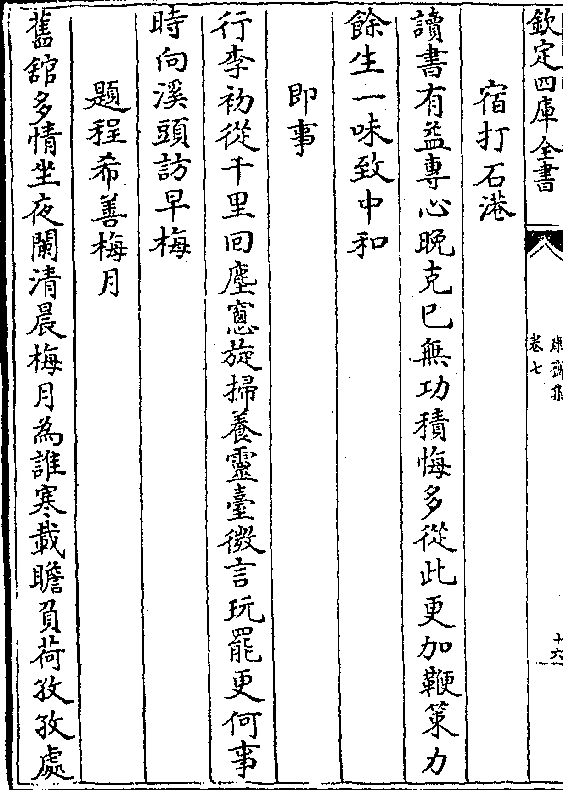 欽定四庫全書
康齋集
卷七
十六
宿打石港
讀書有益專心晚克已無功積悔多從此更加鞭策力
餘生一味致中和
即事
行李初從千里回塵窻旋掃養靈臺微言玩罷更何事
時向溪頭訪早梅
題程希善梅月
舊舘多情坐夜闌清晨梅月為誰寒載瞻負荷孜孜處